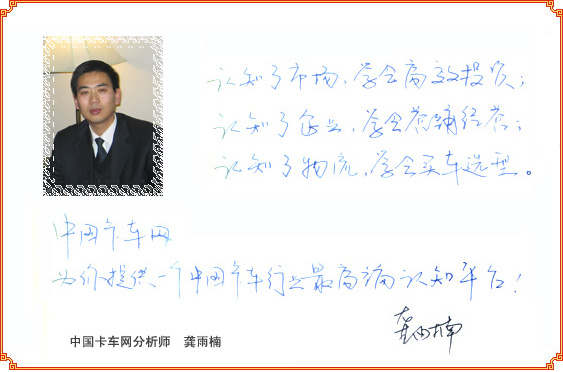 认知了市场，学会高效投资；
认知了企业，学会店铺经营；
认知了物流，学会买车选型。
中国卡车网
为你提供一个中国卡车行业最高端认知平台！
龚雨楠
中国卡车网分析师 龚雨楠